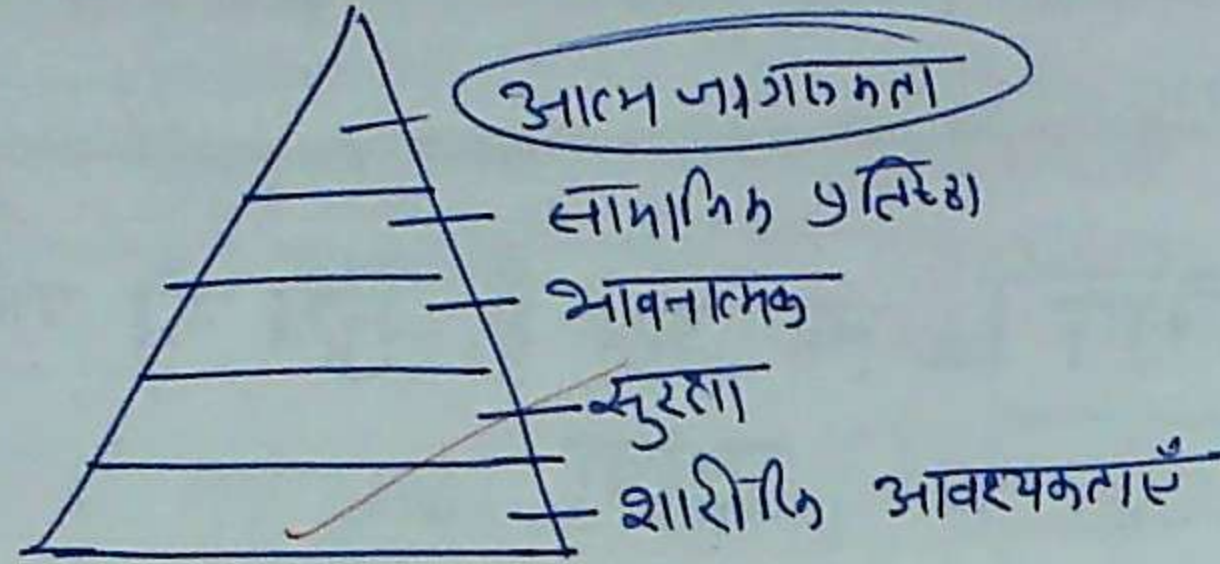 आत्म जागरूकता
सामाजिक प्रतिष्ठा
भावनात्मक
सुरक्षा
शारीरिक आवश्यकताएँ